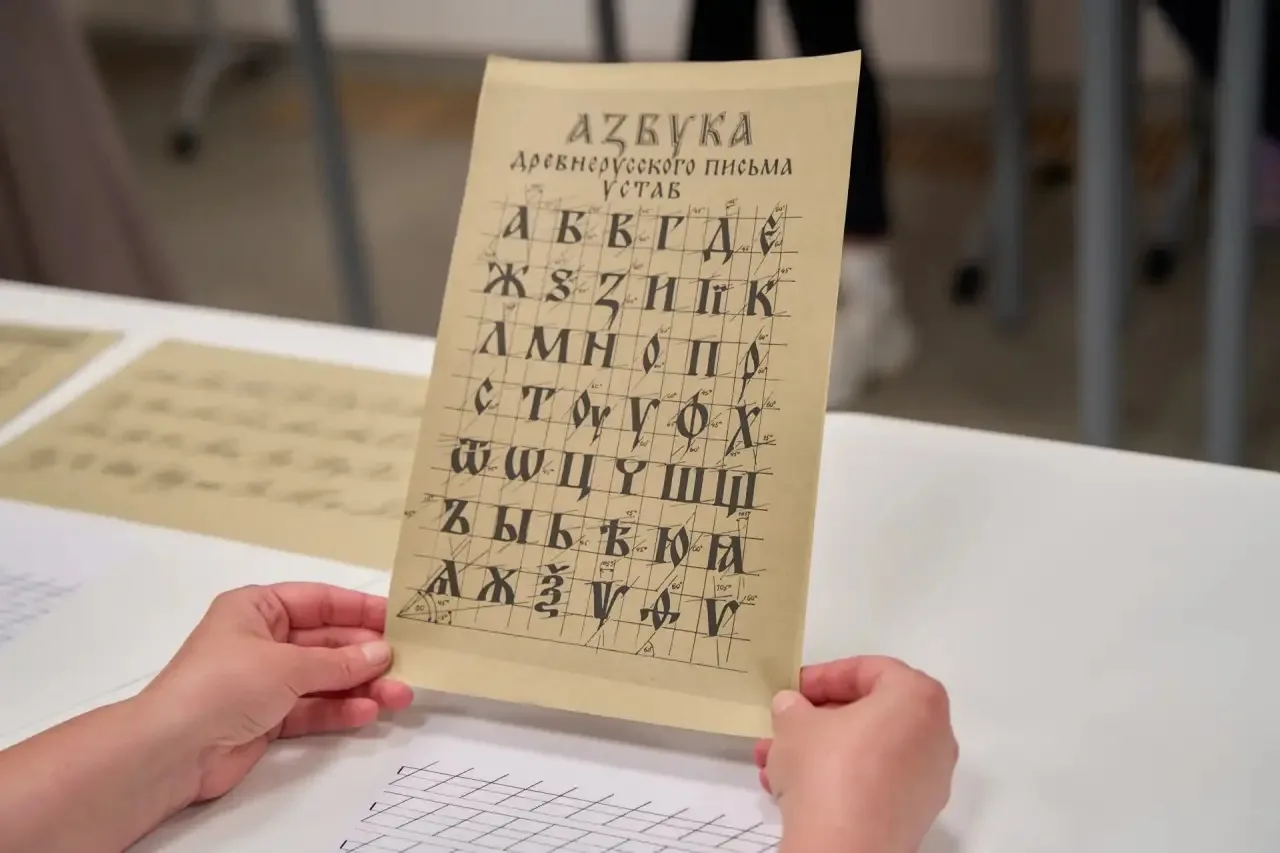 АЗБУКА
ДРЕВНЕРУССКОГО ПИСЬМА
УСТАВ
А Б В Г Д Є
Ж Ѕ З И Ї К
Л М Н О П Р
С Т Оу У Ф Х
Ѿ Ѡ Ц Ч Ш Щ
Ъ Ы Ь Ѣ Ю Ꙗ
Ѧ Ж Ѯ Ѱ Ѳ Ѵ